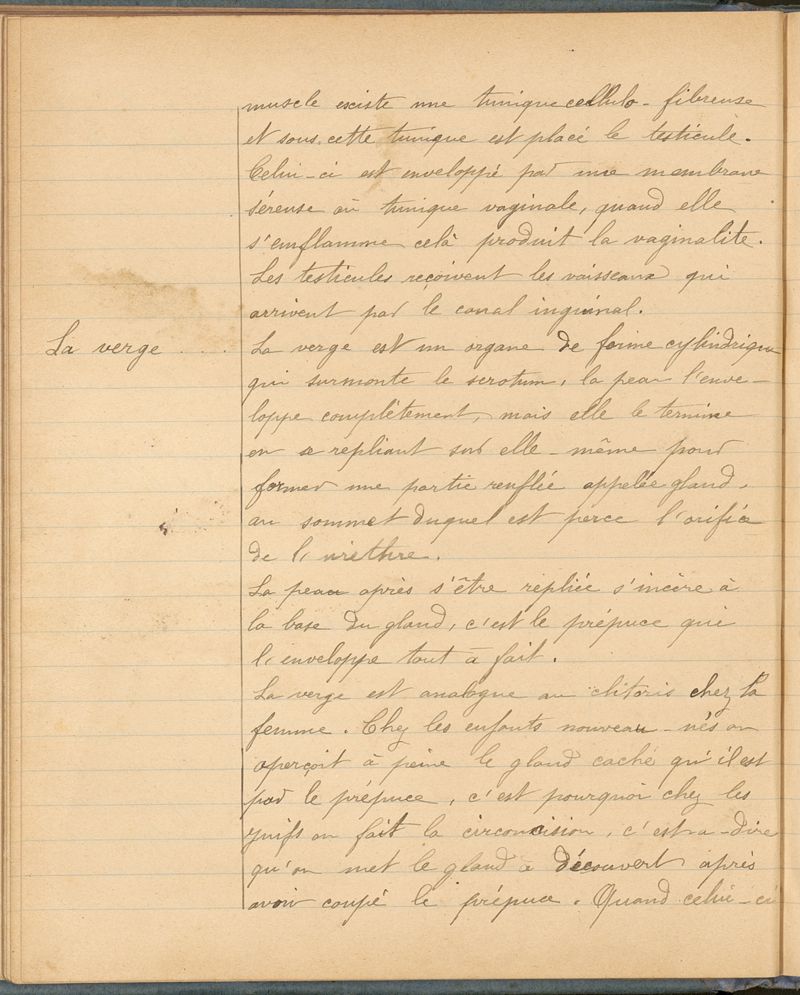 muscle existe une tunique cellulo - fibreuse
et sous cette tunique est placé le testicule.
Celui-ci est enveloppé par une membrane
séreuse où tunique vaginale, quand elle
s'emflamme celà produit la vaginalite.
Les testicules reçoivent les vaisseaux qui
arrivent par le canal inguinal.
La verge . . . . La verge est un organe de forme cylindrique
qui surmonte le scrotum, la peau l'enve-
loppe complètement, mais elle le termine
en se repliant sur elle-même pour
former une partie renflée appelée gland,
au sommet duquel est percé l'orifice
de l'urèthre.
La peau après s'être repliée s'incère à
la base du gland, c'est le prépuce qui
l'enveloppe tout à fait.
La verge est analogue au clitoris chez la
femme. Chez les enfants nouveau-nés on
aperçoit à peine le gland caché qu'il est
par le prépuce, c'est pourquoi chez les
juifs on fait la circoncision, c'est a-dire
qu'on met le gland à découvert après
avoir coupé le prépuce. Quand celui-ci